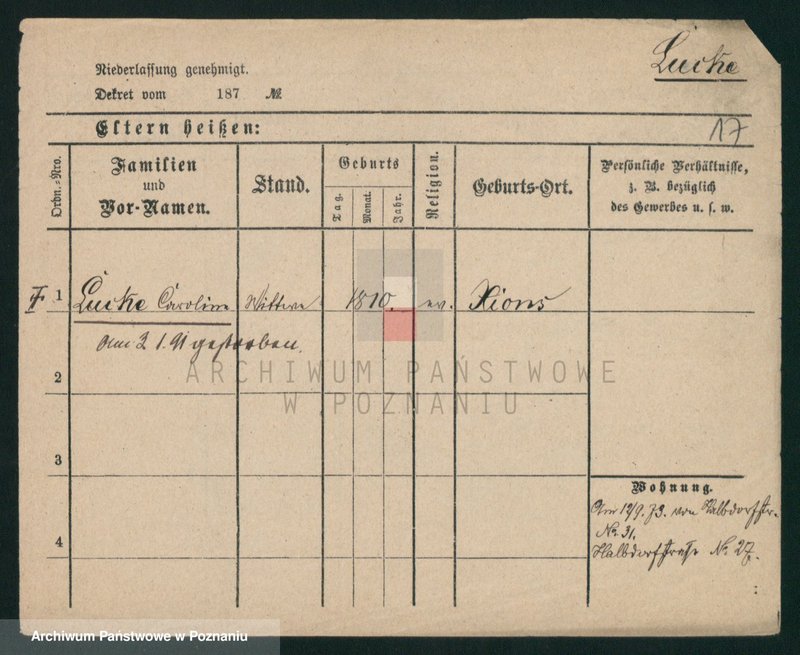 Lucke
Niederlassung genehmigt.
Dekret vom 187 №
Eltern heißen:
17
Ordn.-Nro.
Familien
und
Vor-Namen.
Stand.
Geburts
Tag.
Monat.
Jahr.
Religion.
Geburts-Ort.
Persönliche Verhältnisse,
z. B. bezüglich
des Gewerbes u. s. w.
1 Lucke Caroline Wittwe 1810. ev. Xions
am 2 1.91 gestorben.
ARCHIWUM PAŃSTWOWE
W POZNANIU
2
3
Wohnung.
Am 12/9. 73. von Halbdorfstr.
No. 31.
4
Halbdorfstrasse No. 27.
Archiwum Państwowe w Poznaniu